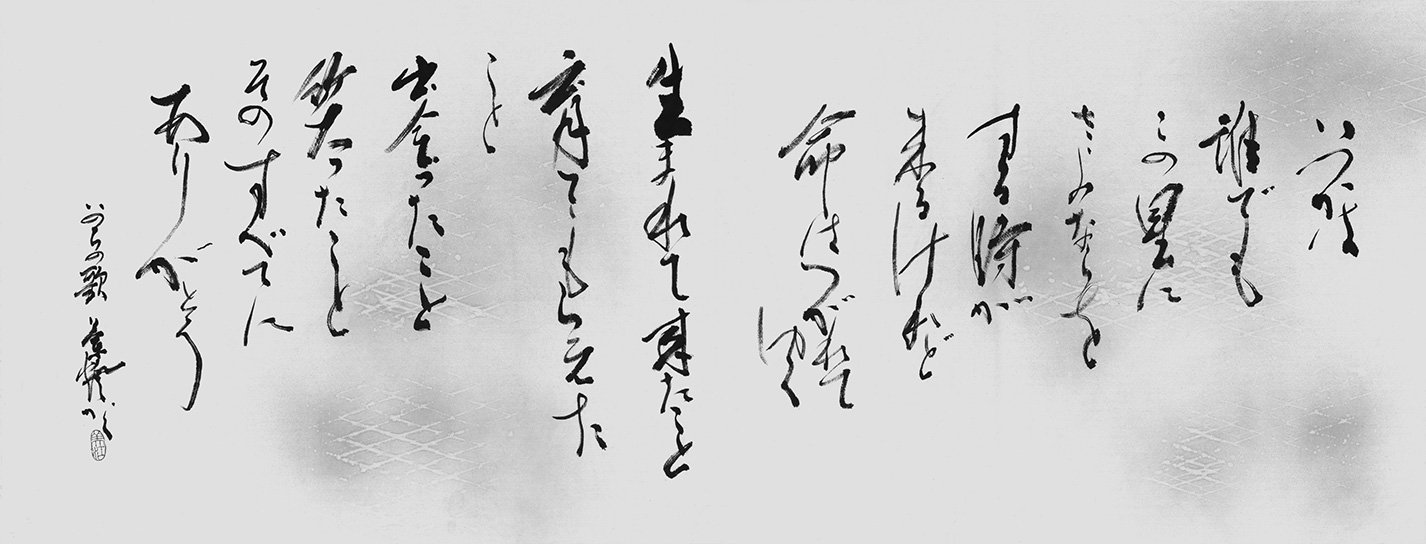 いつかは
誰でも
この星に
さよならを
する時が
来るけれど
命はつがれて
ゆく
生まれて来たこと
育ててもらえた
こと
出会ったこと
笑ったこと
そのすべてに
ありがとう
いのちの歌